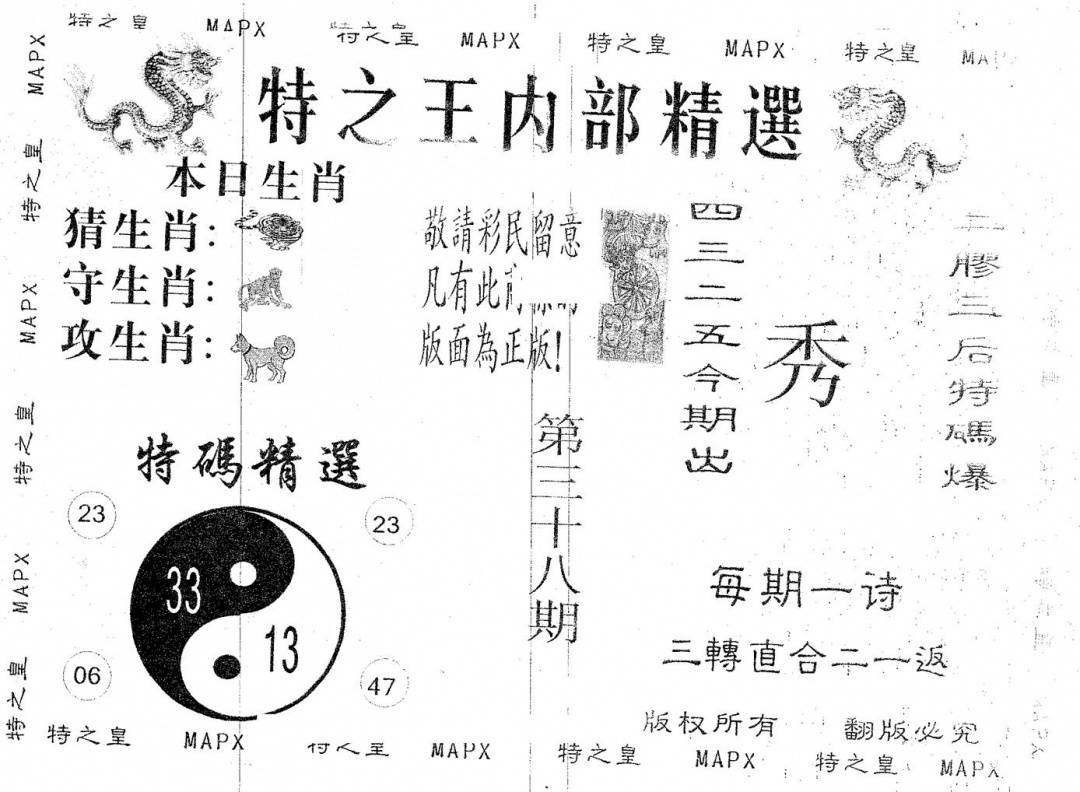 特之皇 MAPX 特之皇 MAPX 特之皇 MAPX 特之皇
MAPX
特之皇
MAPX
特之皇
MAPX
特之皇
特之王内部精選
本日生肖
猜生肖:
守生肖:
攻生肖:
敬請彩民留意
凡有此
版面為正版!
四三二五今期出
秀
三后特碼爆
第三十八期
特碼精選
23
23
33
13
06
47
每期一诗
三轉直合二一返
版权所有 翻版必究
特之皇 MAPX MAPX 特之皇 MAPX 特之皇 MAPX